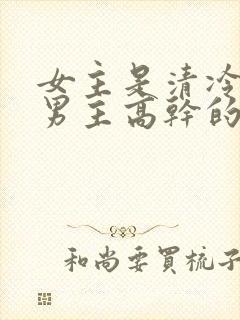 女主是清冷
男主高幹的
和尚要買梳子